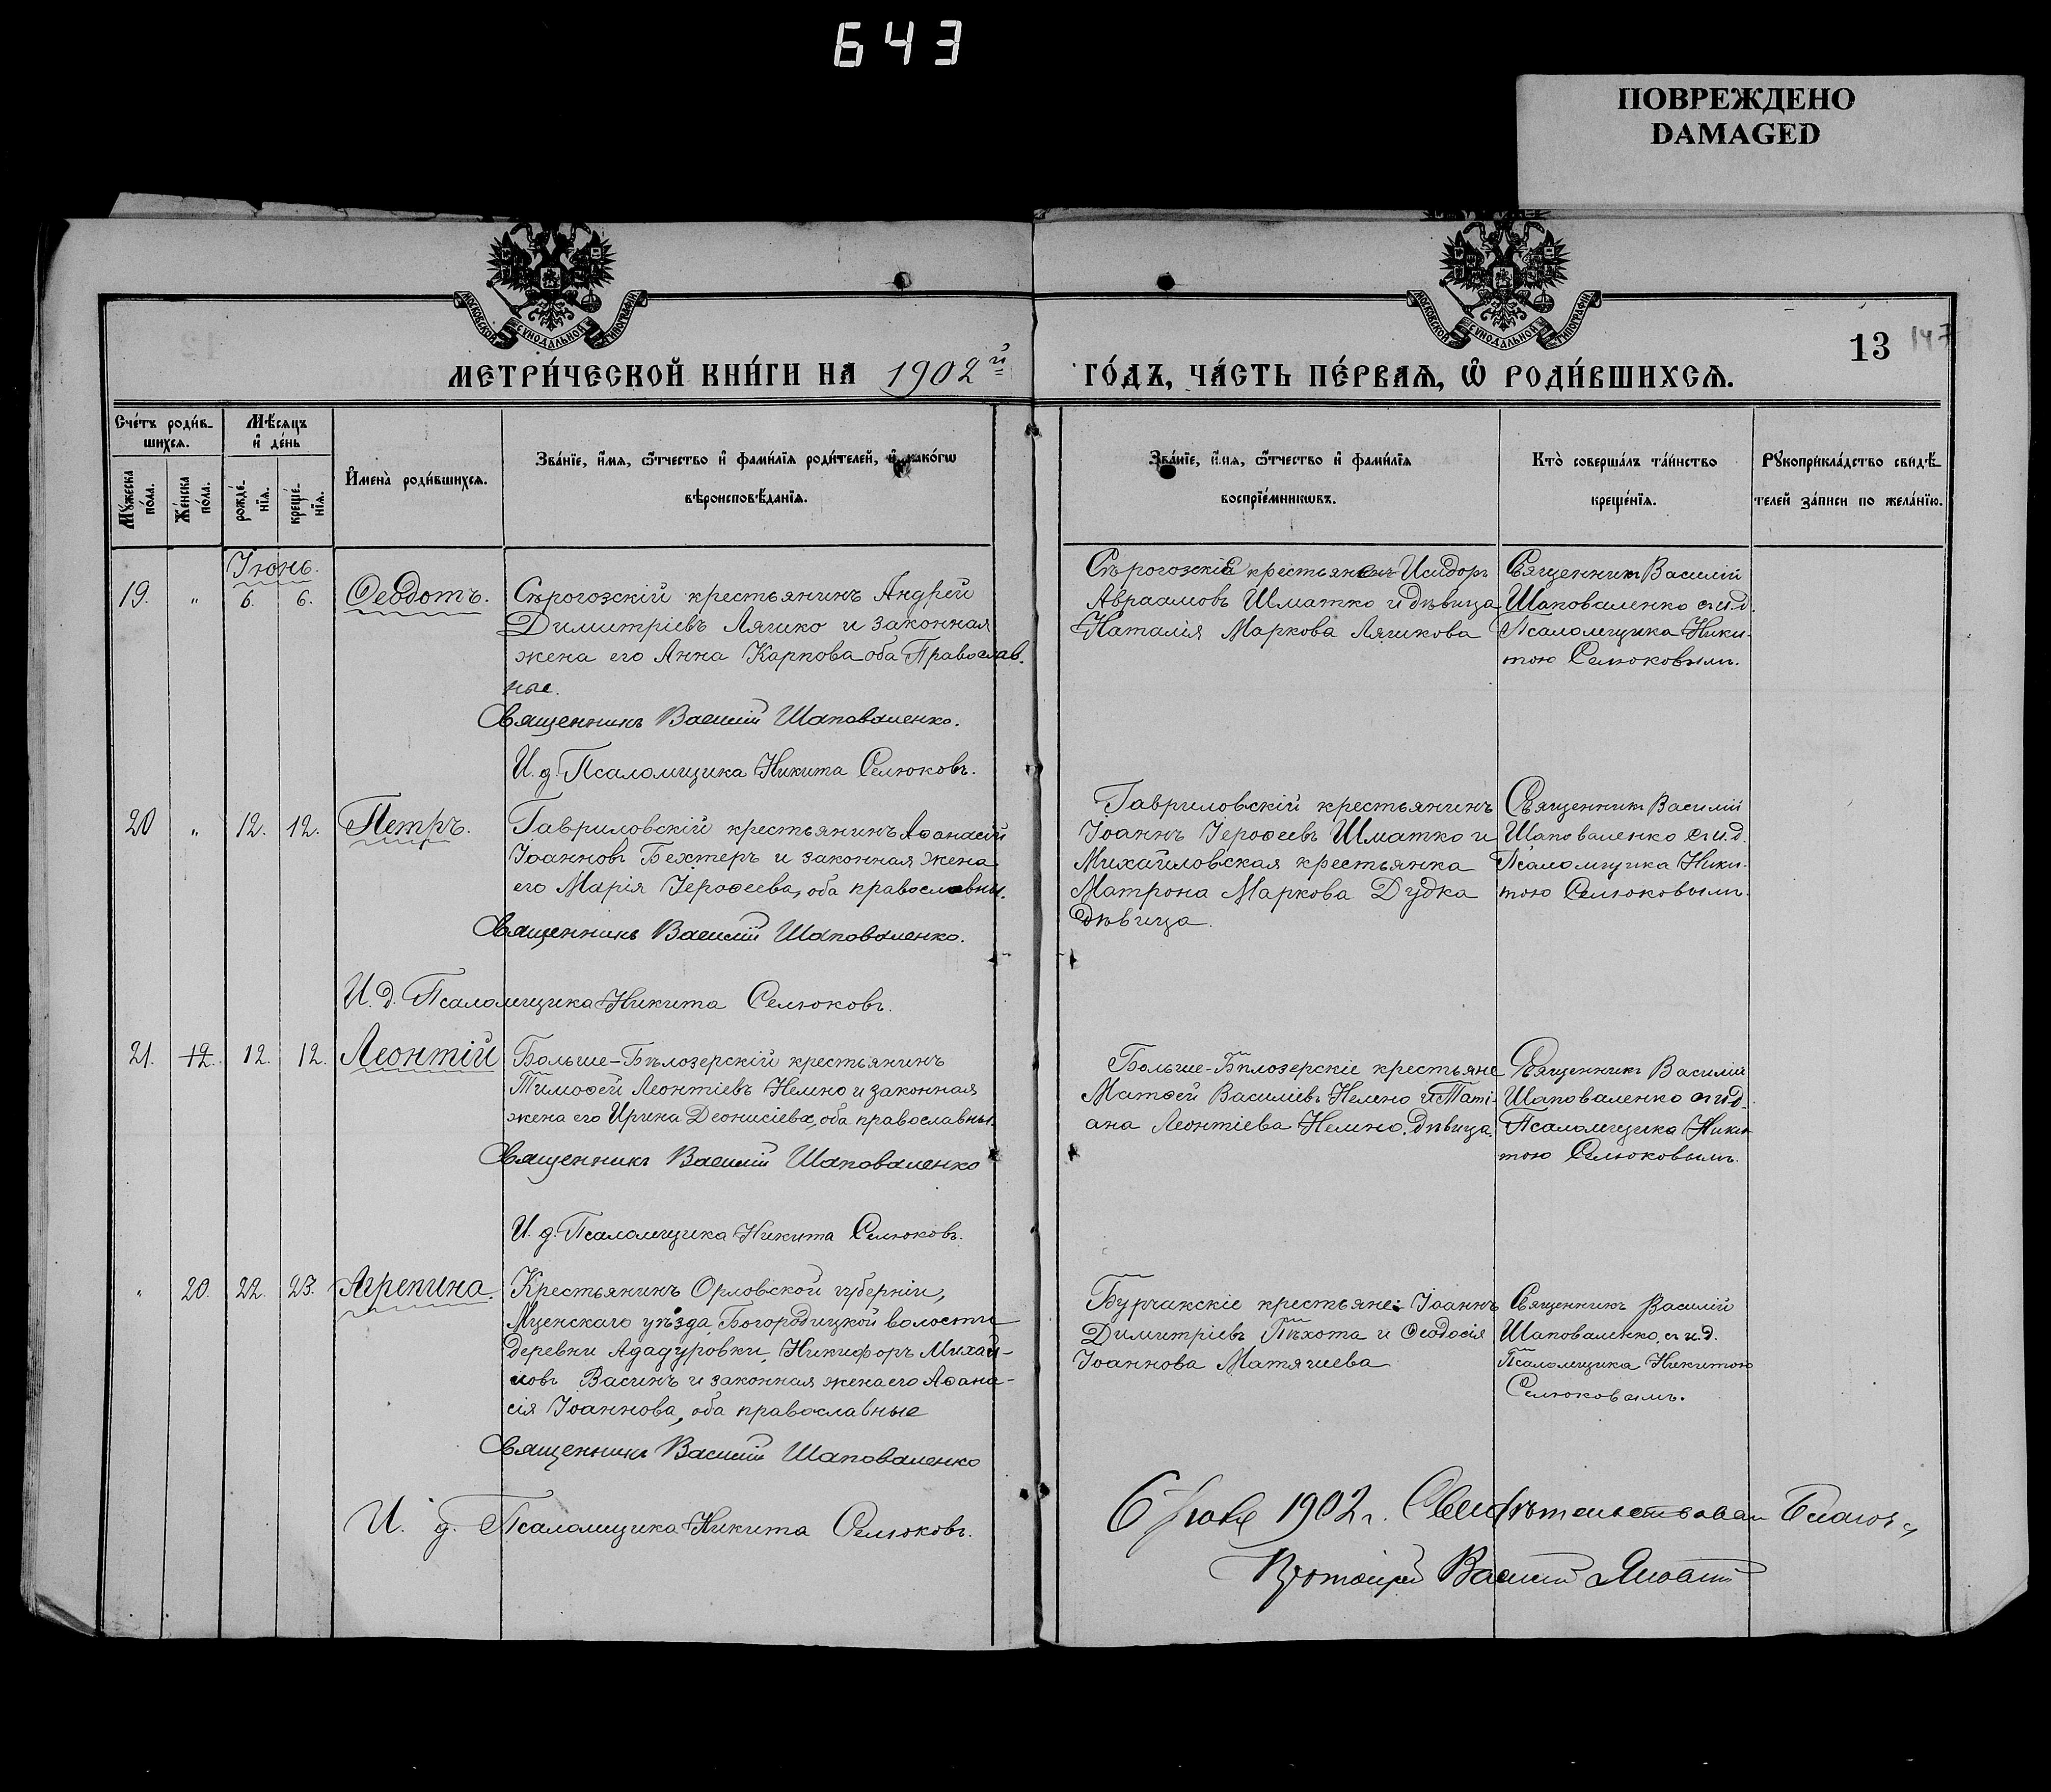 643
ПОВРЕЖДЕНО
DAMAGED
МОСКОВСКОЙ СѴНОДАЛЬНОЙ ТИПОГРАФІИ
МОСКОВСКОЙ СѴНОДАЛЬНОЙ ТИПОГРАФІИ
13 147
МЕТРИ́ЧЕСКОЙ КНИ́ГИ НА 1902й
ГО́ДЪ, ЧА́СТЬ ПЕ́РВАѦ, Ѡ҆ РОДИ́ВШИХСѦ.
Сче́тъ роди́в-
шихсѧ.
Мѣ́сѧцъ
и҆ де́нь
Мꙋ́жеска
по́ла.
Же́нска
по́ла.
рожде́-
нїѧ.
креще́-
нїѧ.
И҆мена̀ роди́вшихсѧ.
Зва́нїе, и҆́мѧ, ѻ҆́тчество и҆ фами́лїѧ роди́телей, и҆ како́гѡ
вѣроисповѣ́данїѧ.
Зва́нїе, и҆́мѧ, ѻ҆́тчество и҆ фами́лїѧ
воспрїе́мникѡвъ.
Кто̀ соверша́лъ та́инство
креще́нїѧ.
Рꙋкоприкла́дство свидѣ́-
телей за́писи по жела́нїю.
Іюнь.
19. " 6. 6. Ѳеодотъ.
Сѣрогозскій крестьянинъ Андрей
Димитріевъ Лячико и законная
жена его Анна Карпова оба Православ.
ные.
Священникъ Василій Шаповаленко.
И. д. Псаломщика Никита Селюковъ.
Сѣрогозскіе крестьяне Исидоръ
Авраамовъ Шматко и дѣвица
Наталія Маркова Лячикова
Священникъ Василій
Шаповаленко съ и.д.
Псаломщика Ники-
тою Селюковымъ.
20 " 12. 12. Петръ.
Гавриловскій крестьянинъ Аѳанасій
Іоанновъ Бехтеръ и законная жена
его Марія Іероѳеева, оба православны.
Священникъ Василій Шаповаленко.
И. д. Псаломщика Никита Селюковъ.
Гавриловскій крестьянинъ
Іоаннъ Іероѳеевъ Шматко и
Михайловская крестьянка
Матрона Маркова Дудка
дѣвица.
Священникъ Василій
Шаповаленко съ и.д.
Псаломщика Ники-
тою Селюковымъ.
21. 12. 12. 12. Леонтій
Больше-Бѣлозерскій крестьянинъ
Тимоѳей Леонтіевъ Немно и законная
жена его Ирина Деонисіева, оба православны.
Священникъ Василій Шаповаленко
И. д. Псаломщика Никита Селюковъ.
Больше-Бѣлозерскіе крестьяне
Матѳей Василіевъ Немно и Таті-
ана Леонтіева Немно, дѣвица.
Священникъ Василій
Шаповаленко съ и.д.
Псаломщика Ники
тою Селюковымъ.
" 20. 22. 23. Агрепина.
Крестьянинъ Орловской губерніи,
Мценскаго уѣзда, Богородицкой волости
деревни Ададуровки, Никифоръ Михай-
ловъ Васинъ и законная жена его Аѳана-
сія Іоаннова, оба православные
Священникъ Василій Шаповаленко
И. д. Псаломщика Никита Селюковъ.
Бурчакскіе крестьяне: Іоаннъ
Димитріевъ Пѣхота и Ѳеодосія
Іоаннова Матячиева
Священникъ Василій
Шаповаленко съ и.д.
Псаломщика Никитою
Селюковымъ.
6 1902 г. Свидѣтельствовалъ
Протоіерей Василій